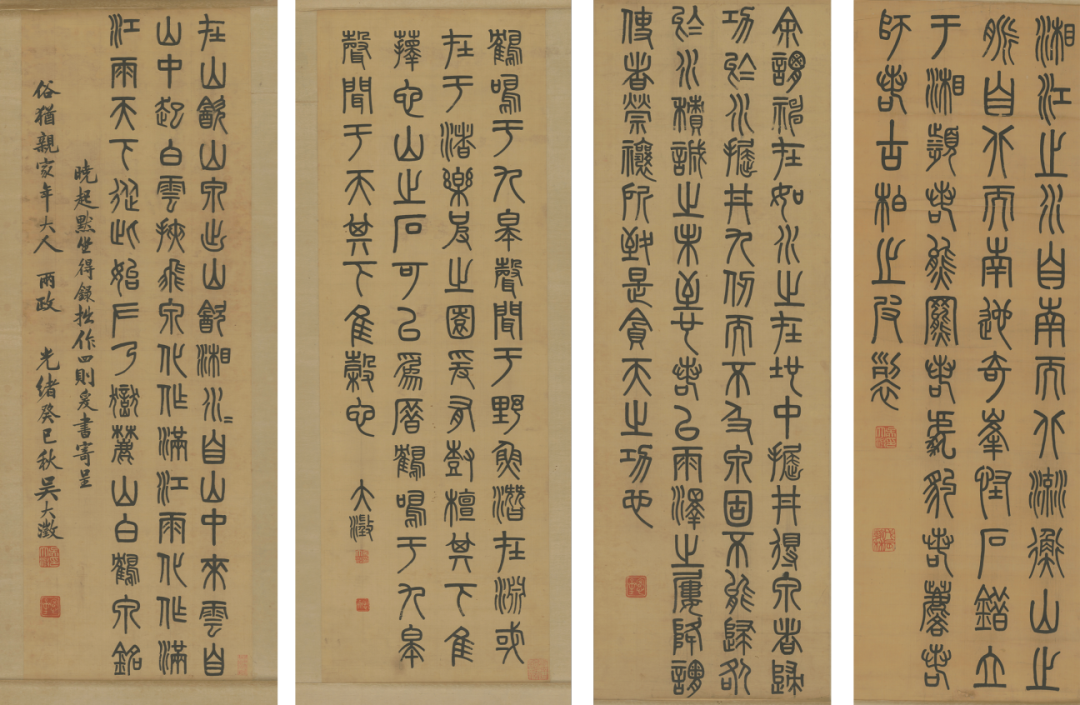 湘江之水自南而北流衡山之
脈自北而南迎奇峯怪石錯立
于湘若熊羆若豹若若
師若古柏之
余謂神在如水之在地中掘井得泉者歸
功於水掘井九仞而不及泉固不能歸咎
於水積誠之未至也若以雨澤之屢降謂
使者禜禳所致是貪天之功也
鶴鳴于九皋聲聞于野魚潛在淵或
在于渚樂彼之園爰有樹檀其下隹
蘀它山之石可以為厝鶴鳴于九皋
聲聞于天其下隹榖也
大澂
在山飲山泉出山飲湘水=自山中來雲自
山中起白雲挾飛泉化作滿江雨化作滿
江雨天下從此始嶽麓山白鶴泉銘
曉起默坐得錄拙作四則爰書寄呈
俗猶親家年大人 兩政 光緒癸巳秋吳大澂